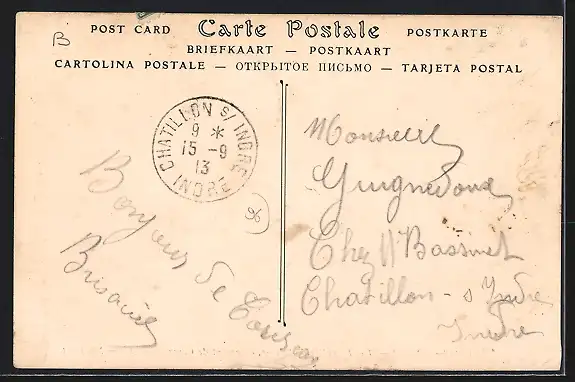 B
POST CARD Carte Postale POSTKARTE
BRIEFKAART — POSTKAART
CARTOLINA POSTALE — ОТКРЫТОЕ ПИСЬМО — TARJETA POSTAL
CHATILLON S/ INDRE
9 *
15 - 9
13
INDRE
96
Bonjour de
Monsieur
Chez Mr Bassinet
Chatillon - s Indre
Indre